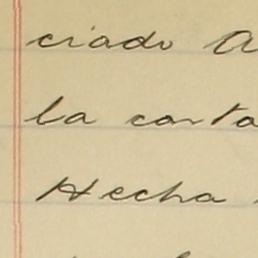 ciado A
la carta
Hecha